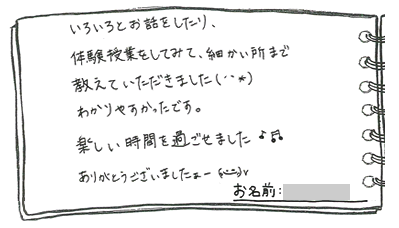 いろいろとお話をしたり、
体験授業をしてみて、細かい所まで
教えていただきました(´･･*)
わかりやすかったです。
楽しい時間を過ごせました♪♬
ありがとうございましたょー (^-^)v
お名前: